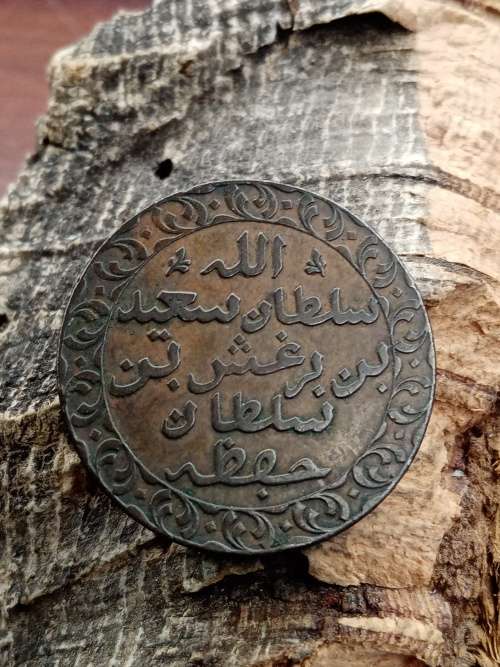 الله
سلطان سعيد
بن برغش بن
سلطان
حفظه